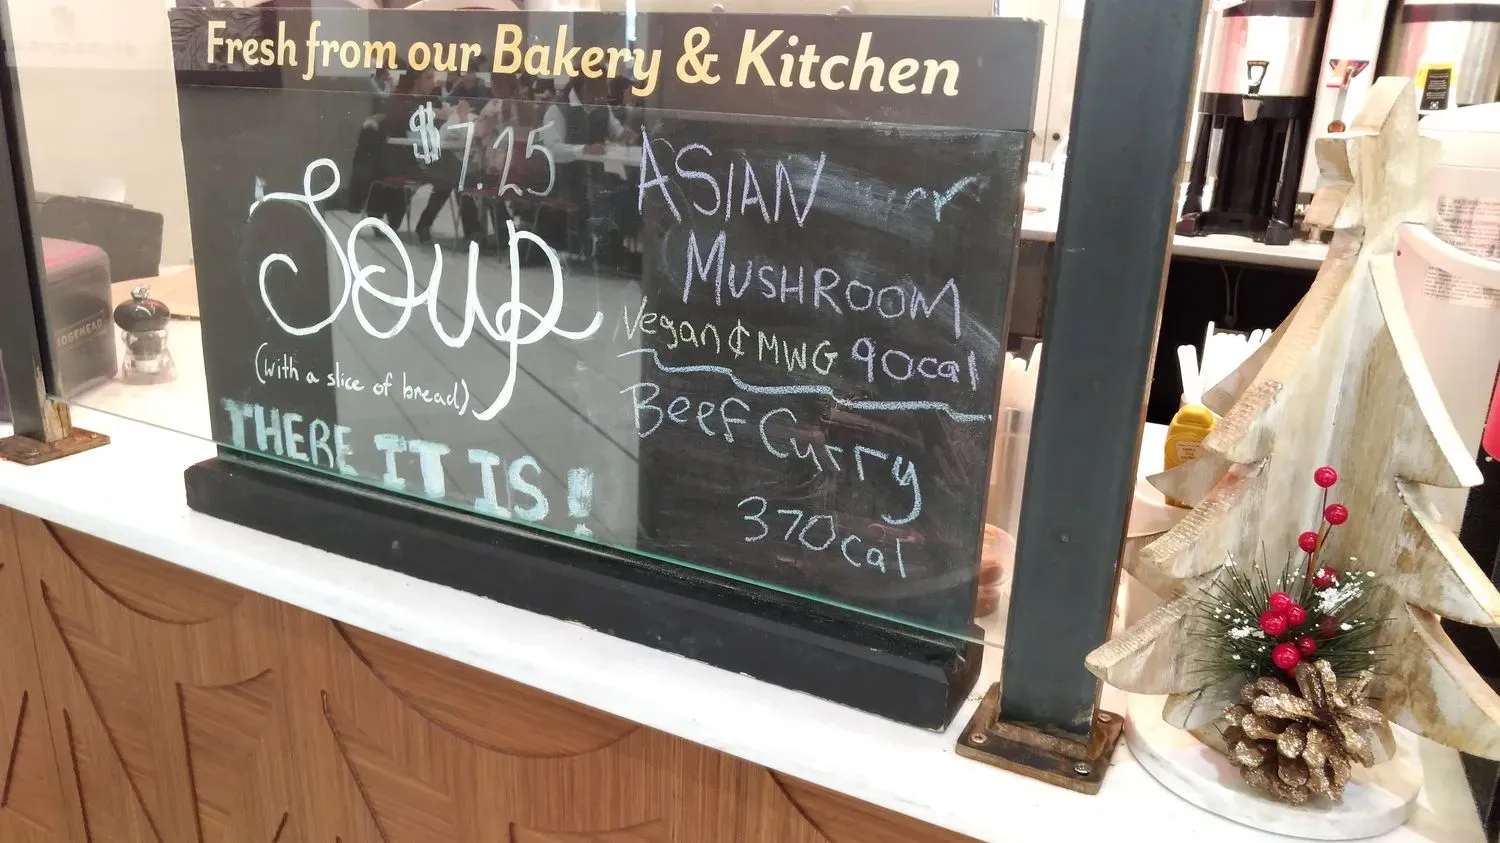 Fresh from our Bakery & Kitchen
$7.25
Soup
(with a slice of bread)
THERE IT IS!
ASIAN
MUSHROOM
Vegan & MWG 90cal
Beef Curry
370cal